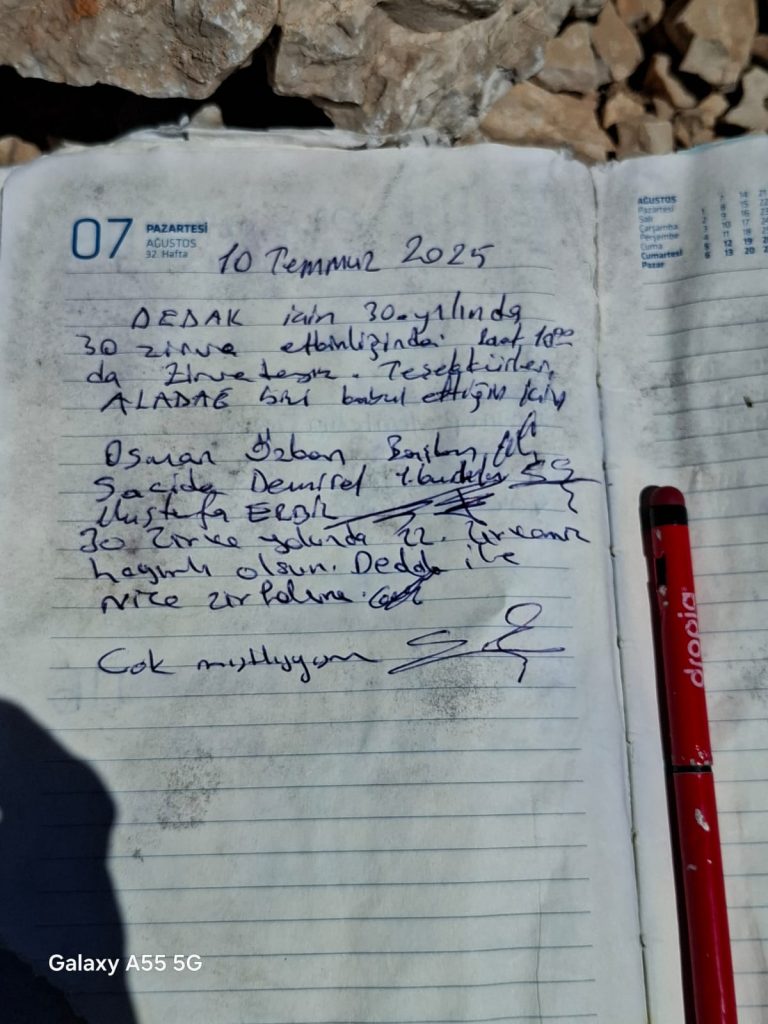 07 PAZARTESİ
AĞUSTOS
32. Hafta
10 Temmuz 2025
DEDAK için 30. yılında
30 zirve etkinliğinde saat 10:00
da Zirvedeyiz. Teşekkürler
ALADAĞ bizi kabul ettiğin için
Osman Özkan Başkan
Sacide Demirel
Mustafa ERBİL
30 Zirve yolunda 22. zirvemiz
hayırlı olsun. Dedak ile
nice zirvelere.
Çok mutluyum
AĞUSTOS
Pazartesi 7 14 21
Salı 1 8 15 22
Çarşamba 2 9 16 23
Perşembe 3 10 17 24
Cuma 4 11 18
Cumartesi 5 12 19
Pazar 6 13 20
dropia
Galaxy A55 5G